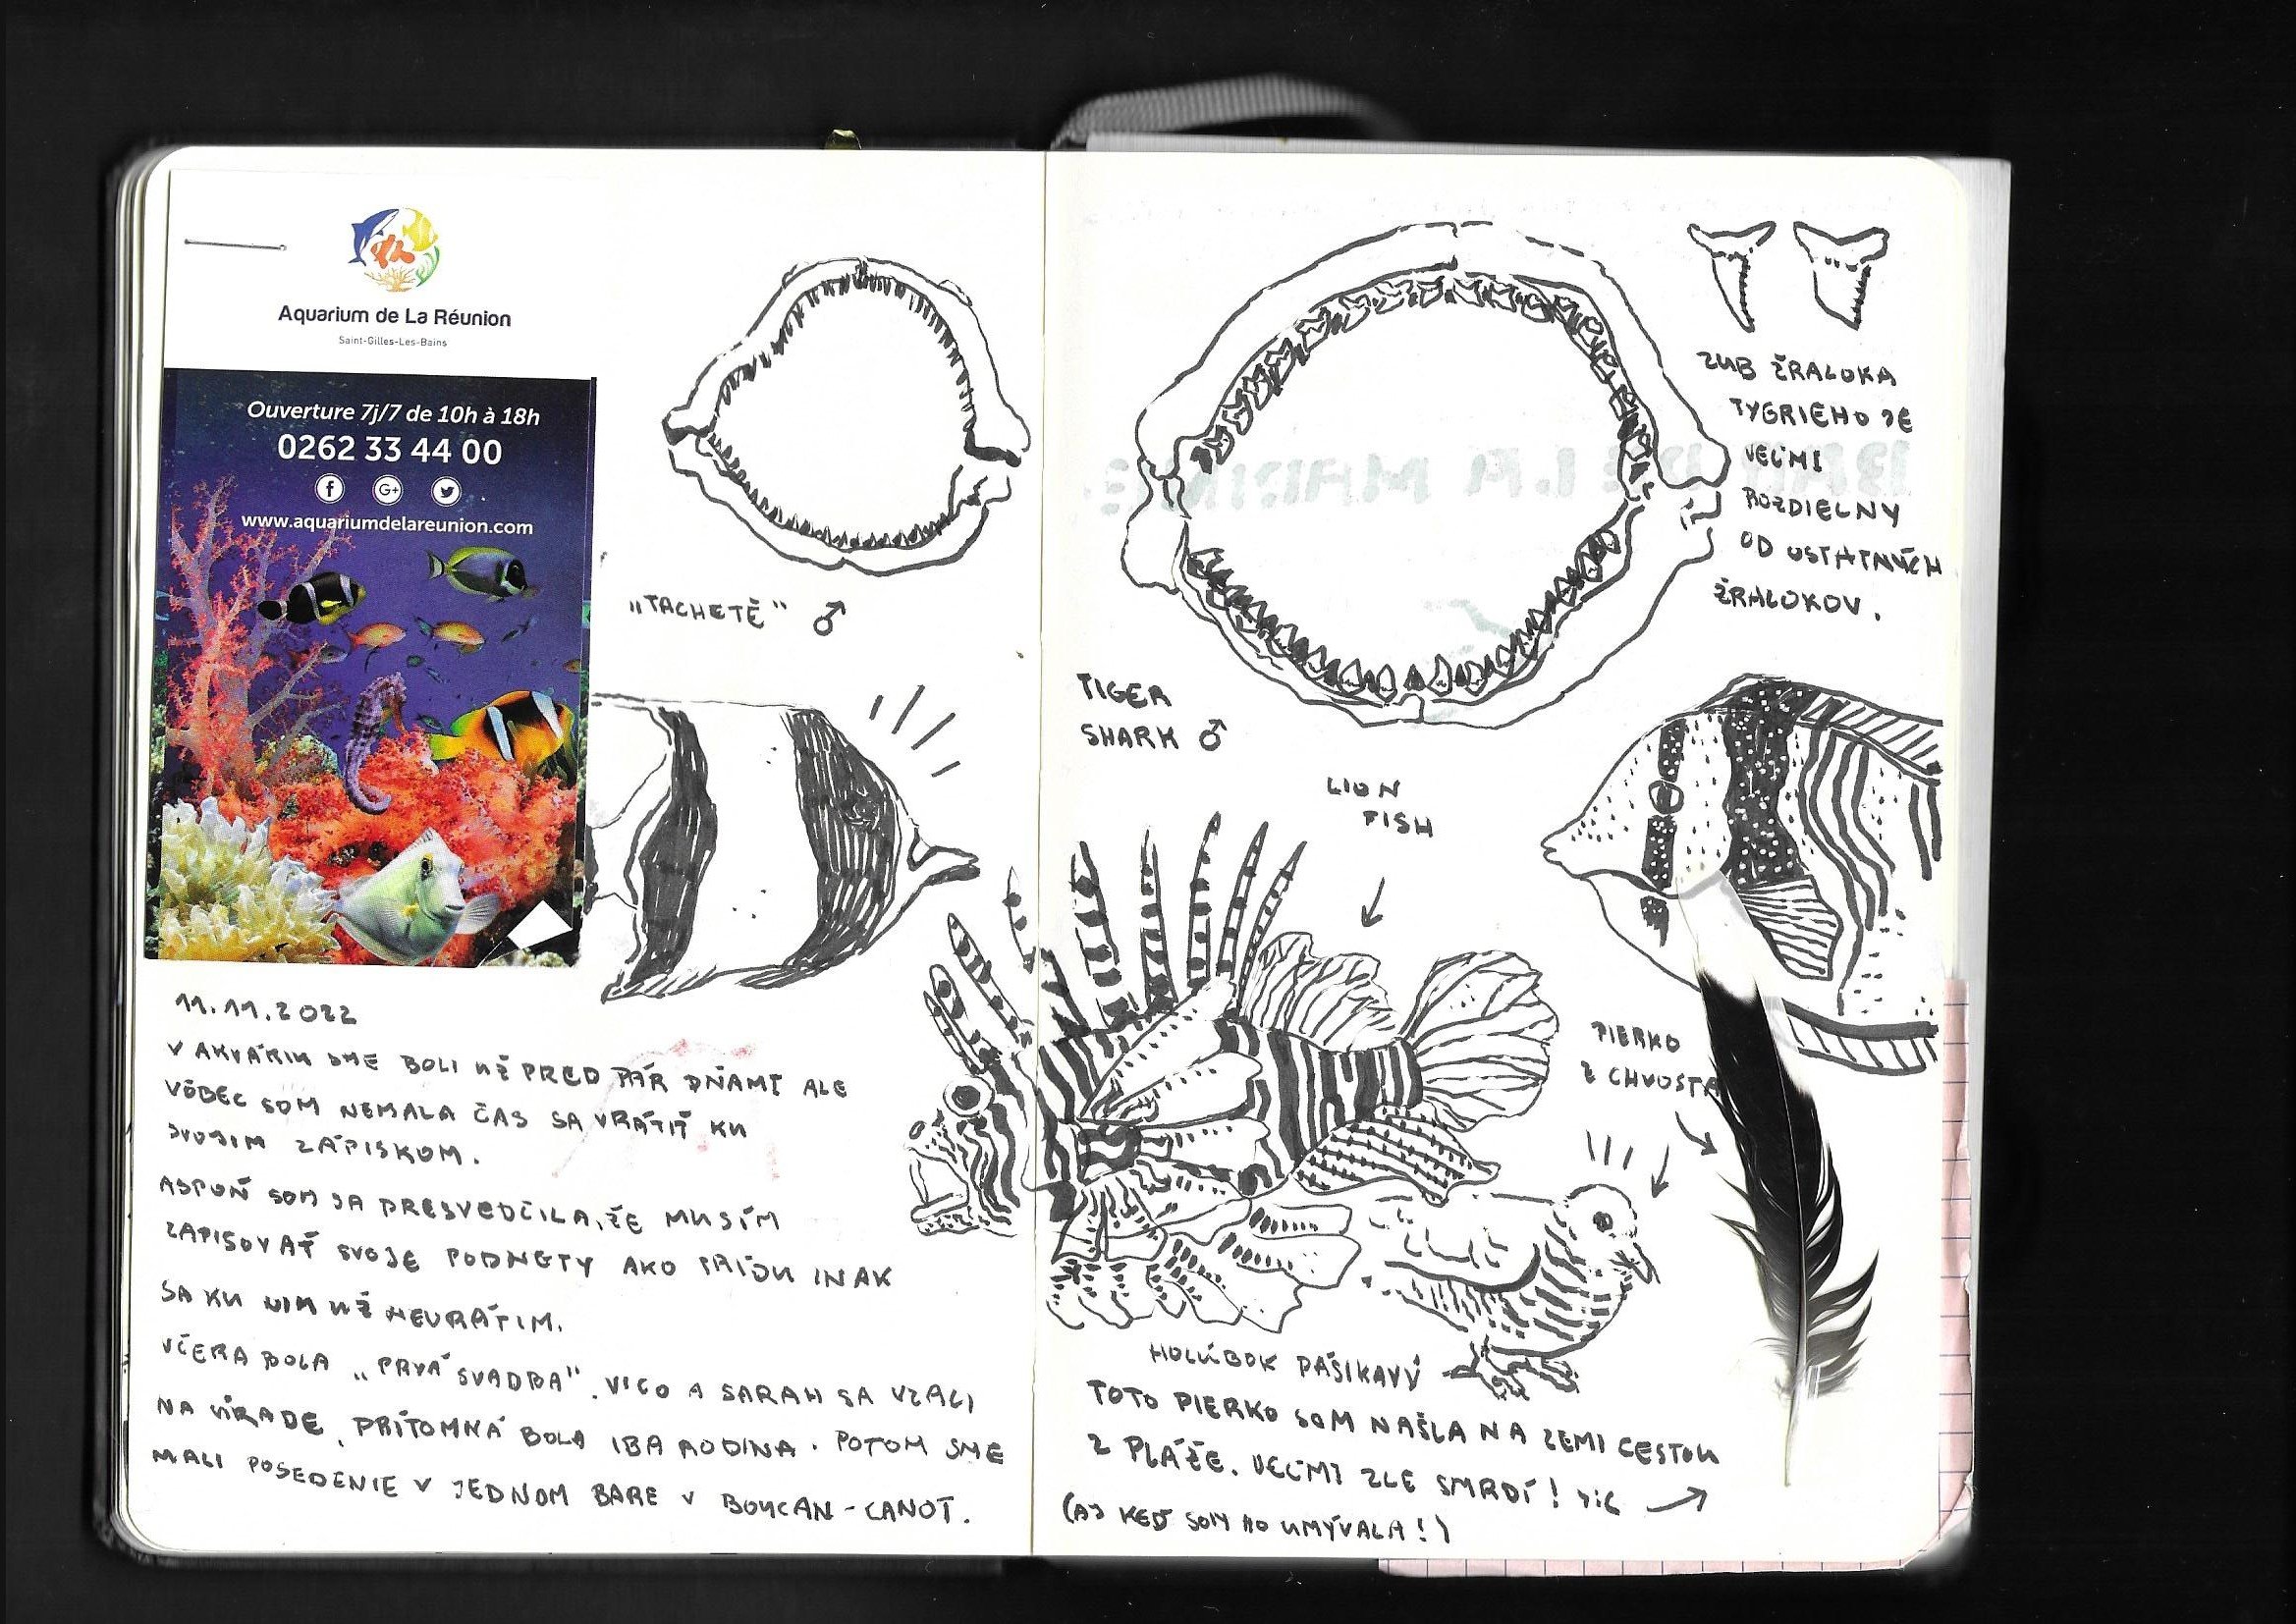 Aquarium de La Réunion
Saint-Gilles-Les-Bains
Ouverture 7j/7 de 10h à 18h
0262 33 44 00
www.aquariumdelareunion.com
„TACHETÉ“ ♂
11.11.2022
V AKVÁRIU SME BOLI UŽ PRED PÁR DŇAMI ALE
VÔBEC SOM NEMALA ČAS SA VRÁTIŤ KU
SVOJIM ZÁPISKOM.
ASPOŇ SOM SA PRESVEDČILA, ŽE MUSÍM
ZAPISOVAŤ SVOJE PODNETY AKO PRÍDU INAK
SA KU NIM UŽ NEVRÁTIM.
VČERA BOLA „PRVÁ SVADBA“. VICO A SARAH SA VZALI
NA ÚRADE, PRÍTOMNÁ BOLA IBA RODINA. POTOM SME
MALI POSEDENIE V JEDNOM BARE V BOUCAN-CANOT.
ZUB ŽRALOKA
TYGRIEHO JE
VEĽMI
ROZDIELNY
OD OSTATNÝCH
ŽRALOKOV.
TIGER
SHARK ♂
LION
FISH
PIERKO
Z CHVOSTA
HOLÚBOK PÁSIKAVÝ
TOTO PIERKO SOM NAŠLA NA ZEMI CESTOU
Z PLÁŽE. VEĽMI ZLE SMRDÍ!
(AJ KEĎ SOM HO UMÝVALA!)